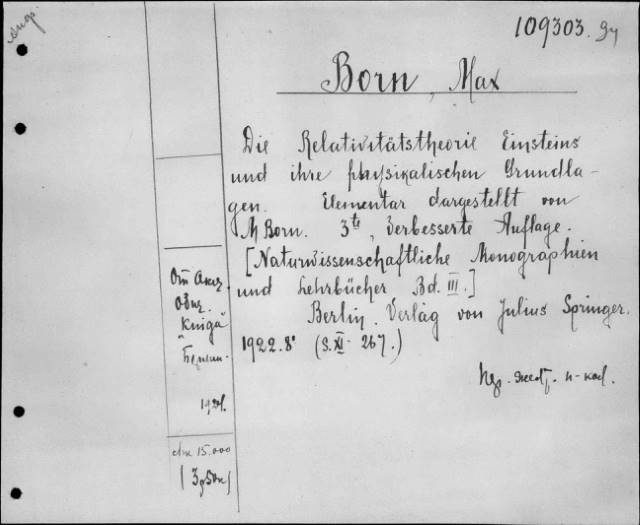 109303.
Born, Max
Die Relativitätstheorie Einsteins
und ihre physikalischen Grundla-
gen. Elementar dargestellt von
M Born. 3te, verbesserte Auflage.
[Naturwissenschaftliche Monographien
und Lehrbücher Bd. III.]
Berlin. Verlag von Julius Springer.
1922. 8° (S. XI 267.)
От Акц.
Общ.
"Kniga"
Берлин.
15.000